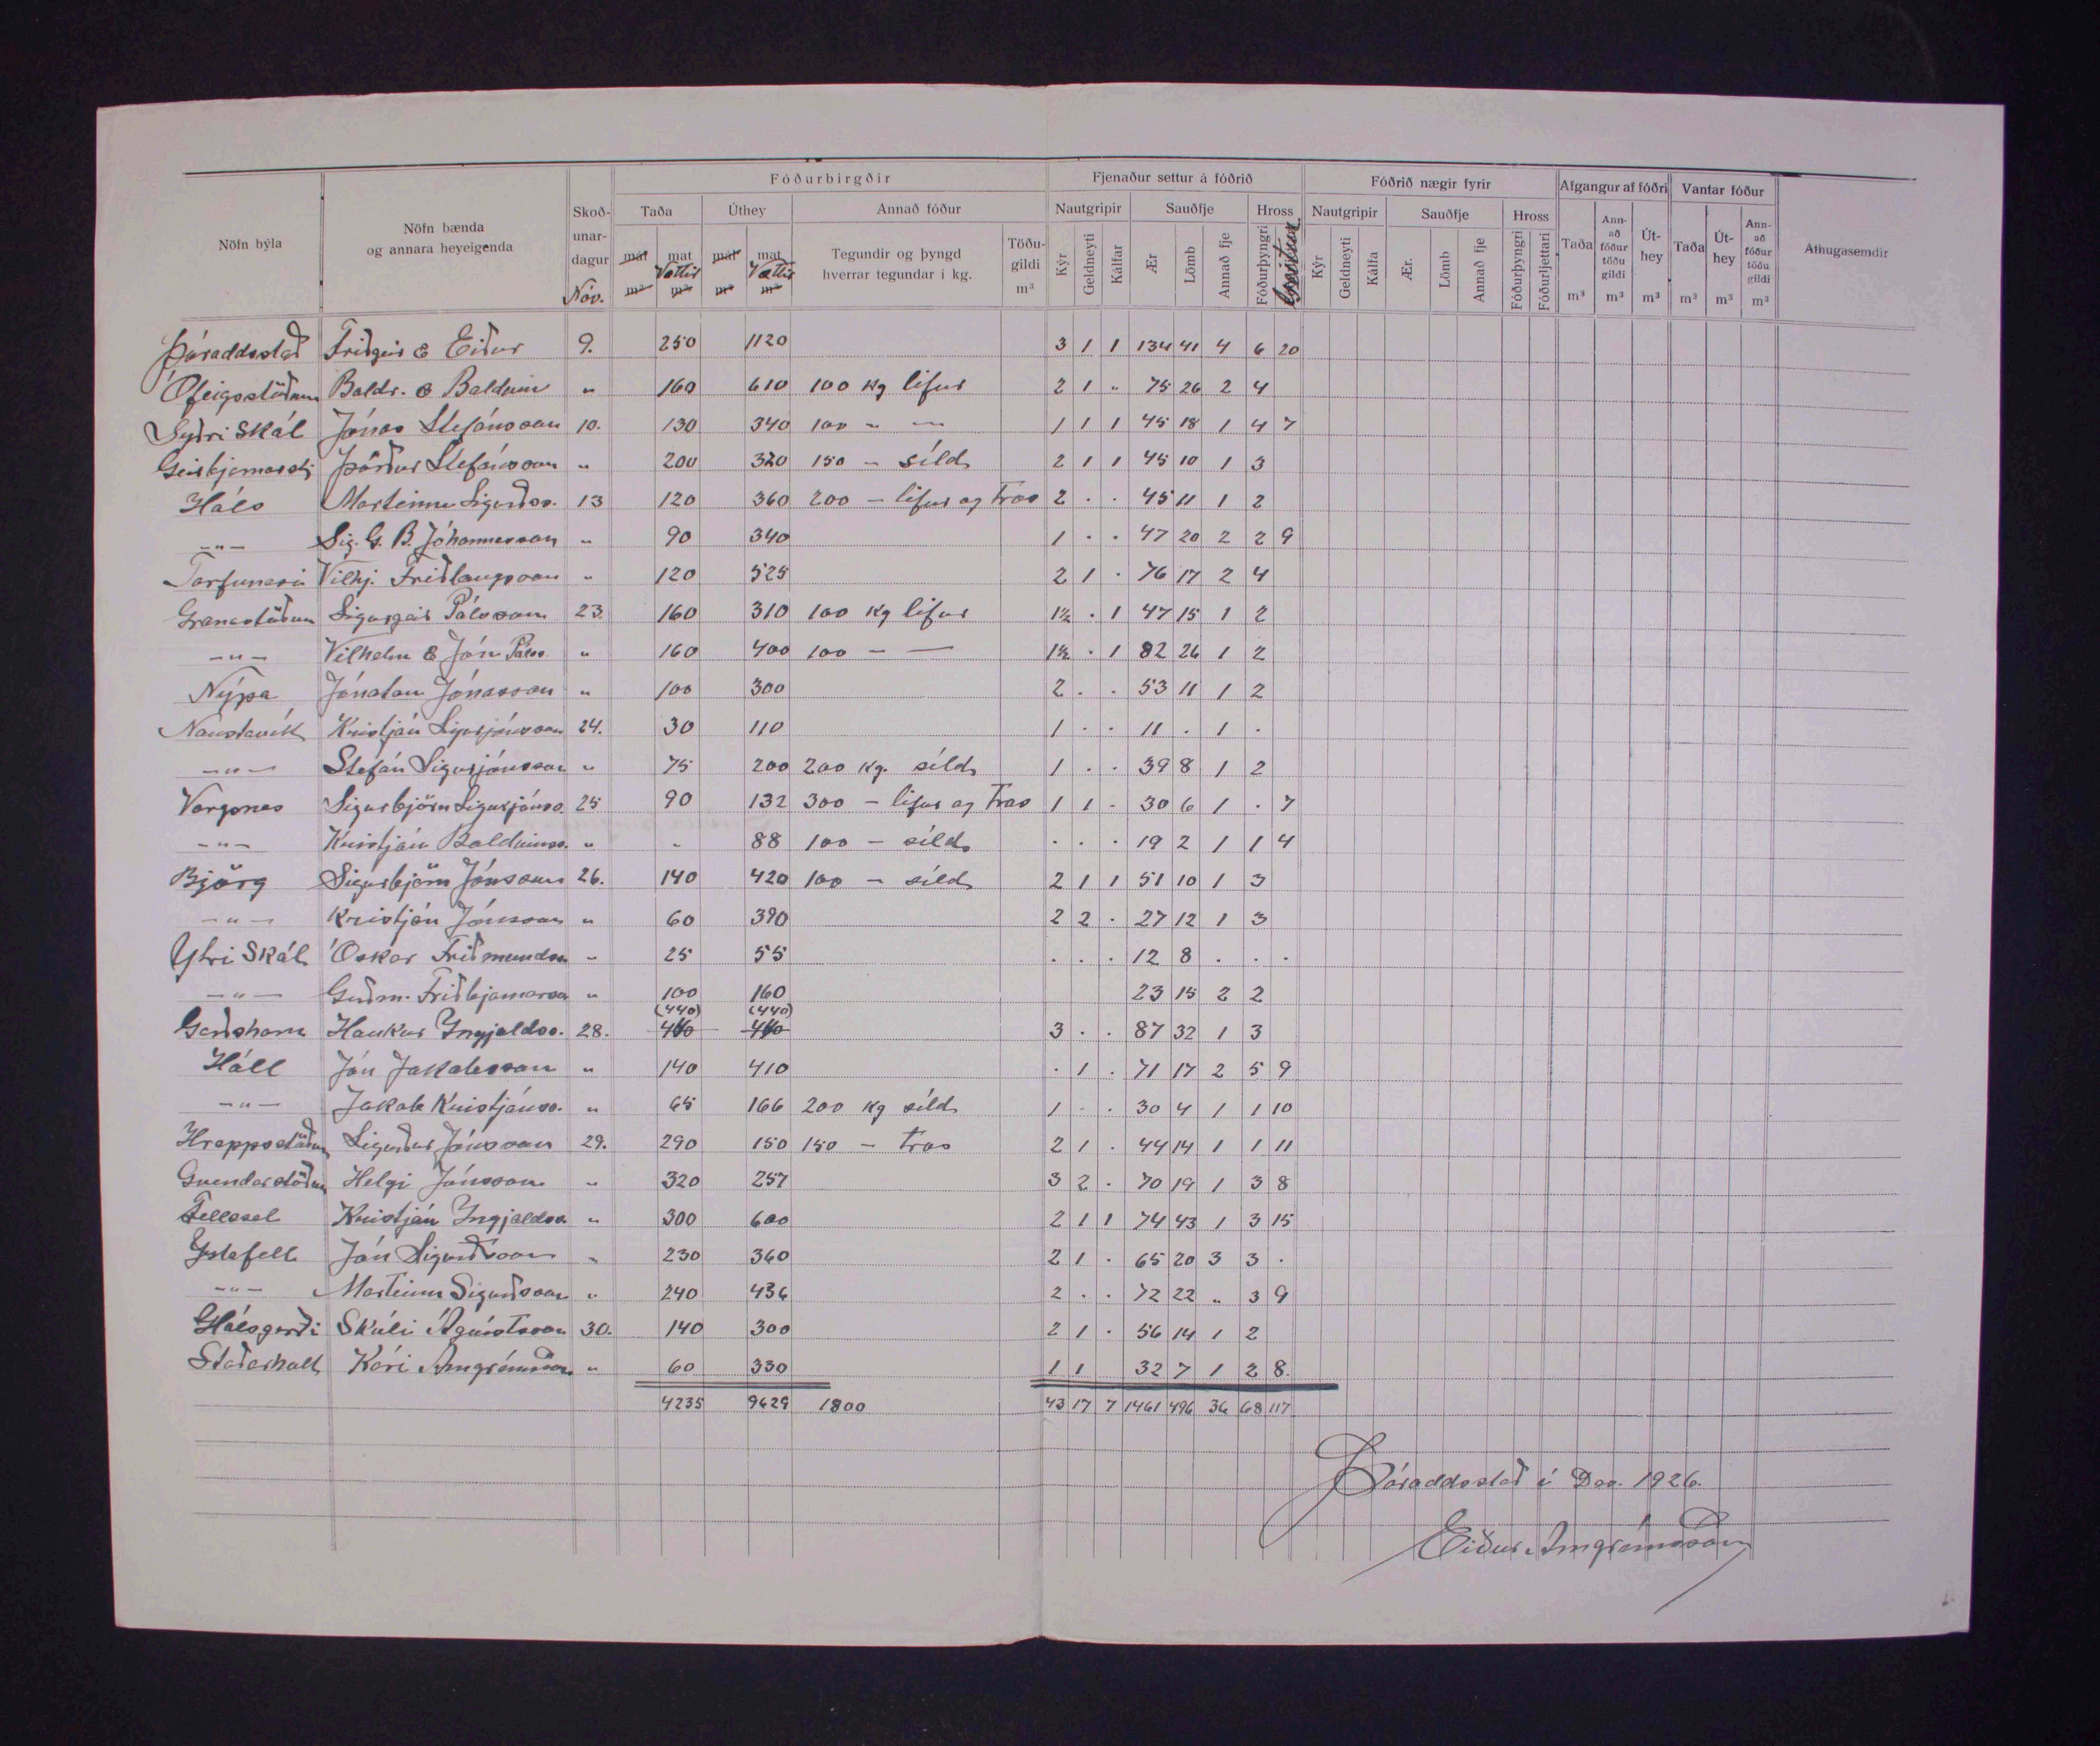 Nöfn býla | Nöfn bænda og annara heyeigenda | Skoðunardagur Nóv. | Fóðurbirgðir | Fjenaður settur á fóðrið | Fóðrið nægir fyrir | Afgangur af fóðri | Vantar fóður | Athugasemdir
Taða | Úthey | Annað fóður | Nautgripir | Sauðfje | Hross | Nautgripir | Sauðfje | Hross | Taða | Annað fóður töðu gildi | Úthey | Taða | Úthey | Annað fóður töðu gildi
mál m³ | mat Vættir m³ | mál m³ | mat Vættir m³ | Tegundir og þyngd hverrar tegundar í kg. | Töðugildi m³ | Kýr | Geldneyti | Kálfar | Ær | Lömb | Annað fje | Fóðurþyngri | Geitur | Kýr | Geldneyti | Kálfa | Ær. | Lömb | Annað fje | Fóðurþyngri | Fóðurljettari | m³ | m³ | m³ | m³ | m³ | m³
Þóraddsstað Friðgeir & Eiður 9. 250 1120 3 1 1 134 41 4 6 20
Ófeigsstöðum Baldr. & Baldvin " 160 610 100 kg lifur 2 1 " 75 26 2 4
Syðri Skál Jónas Stefánsson 10. 130 340 100 - — 1 1 1 45 18 1 4 7
Geirbjarnarst. Þórður Stefánsson " 200 320 150 - síld 2 1 1 45 10 1 3
Háls Marteinn Sigurðss. 13 120 360 200 - lifur og Tros 2 . . 45 11 1 2
-"- Sig. G. B. Jóhannesson " 90 340 1 . . 47 20 2 2 9
Torfunesi Vilhj. Friðlaugsson " 120 525 2 1 . 76 17 2 4
Granastöðum Sigurgeir Pálsson 23. 160 310 100 kg lifur 1½ . 1 47 15 1 2
-"- Vilhelm & Jón Pálss. " 160 400 100 - — 1½ . 1 82 26 1 2
Nýpa Jónatan Jónasson " 100 300 2 . . 53 11 1 2
Naustavík Kristján Sigurjónsson 24. 30 110 1 . . 11 . 1 .
-"- Stefán Sigurjónsson " 75 200 200 kg. síld 1 . . 39 8 1 2
Vargsnes Sigurbjörn Sigurjónss. 25 90 132 300 - lifur og Tros 1 1 . 30 6 1 . 7
-"- Kristján Baldvinss. " " 88 100 - síld . . . 19 2 1 1 4
Björg Sigurbjörn Jónsson 26. 140 420 100 - síld 2 1 1 51 10 1 3
-"- Kristján Jónsson " 60 390 2 2 . 27 12 1 3
Ytri Skál Óskar Friðmundss. " 25 55 . . . 12 8 . . .
-"- Guðm. Friðbjarnarson " 100 160 23 15 2 2
(440) (440)
Garðshorn Haukur Ingjaldss. 28. 3 . . 87 32 1 3
Háll Jón Jakobsson " 140 410 . 1 . 71 17 2 5 9
-"- Jakob Kristjánss. " 65 166 200 kg síld 1 . . 30 4 1 1 10
Hrappsstöðum Sigurður Jónsson 29. 290 150 150 - Tros 2 1 . 44 14 1 1 11
Gvendarstöðum Helgi Jónsson " 320 257 3 2 . 70 19 1 3 8
Fellssel Kristján Ingjaldss. " 300 600 2 1 1 74 43 1 3 15
Ystafell Jón Sigurðsson " 230 360 2 1 . 65 20 3 3 .
-"- Marteinn Sigurðsson " 240 436 2 . . 72 22 " 3 9
Hálsgerði Skúli Ágústsson 30. 140 300 2 1 . 56 14 1 2
Staðarholt Kári Arngrímsson " 60 330 1 1 32 7 1 2 8
4235 9629 1800 43 17 7 1461 496 36 68 117
Þóraddsstað í Des. 1926.
Eiður Arngrímsson